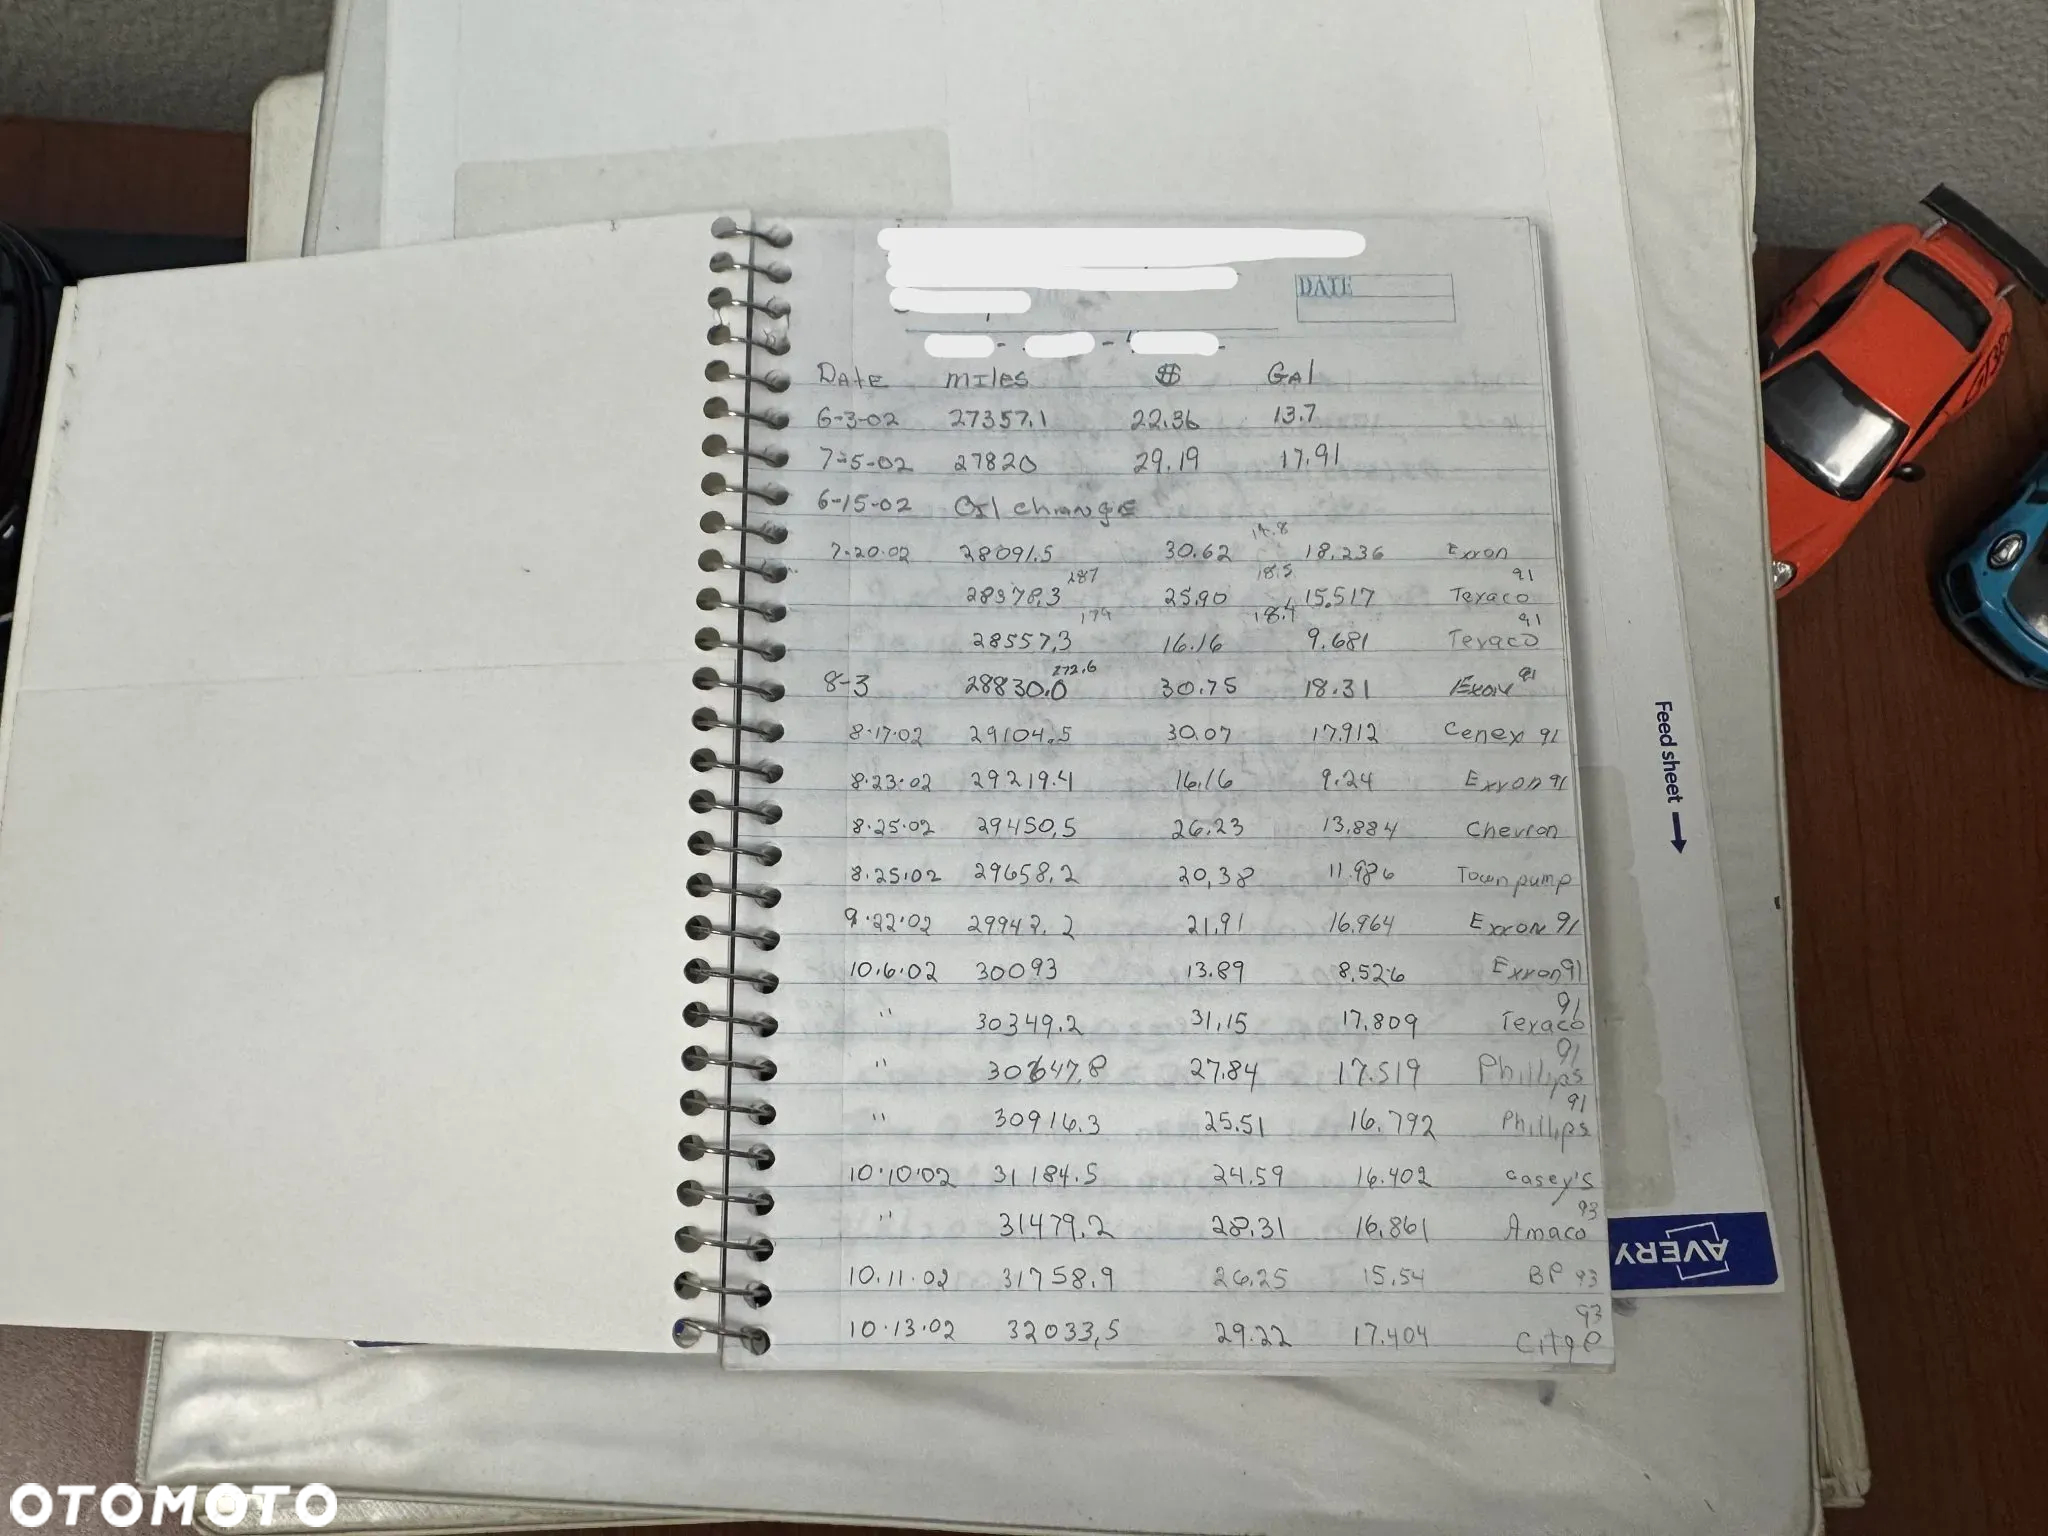 DATE
Date miles $ Gal
6-3-02 27357.1 22.36 13.7
7-5-02 27820 29.19 17.91
6-15-02 Oil change
14.8
7.20.02 28091.5 30.62 18.236 Exxon
287 18.5 91
28378.3 25.90 15.517 Texaco
179 18.4 91
28557.3 16.16 9.681 Texaco
272.6 91
8-3 28830.0 30.75 18.31 Exxon
8.17.02 29104.5 30.07 17.912 Cenex 91
8.23.02 29219.4 16.16 9.24 Exxon 91
8.25.02 29450.5 26.23 13.884 Chevron
8.25.02 29658.2 20.38 11.986 Town pump
9.22.02 21.91 16.964 Exxon 91
10.6.02 30093 13.89 8.526 Exxon 91
91
" 30349.2 31.15 17.809 Texaco
91
" 30647.8 27.84 17.519 Phillips
91
" 30916.3 25.51 16.792 Phillips
10.10.02 31184.5 24.59 16.402 Casey's
93
" 31479.2 28.31 16.861 Amaco
10.11.02 31758.9 26.25 15.54 BP 93
93
10.13.02 32033.5 29.22 17.404 Citgo
Feed sheet →
AVERY
GT3R
OTOMOTO